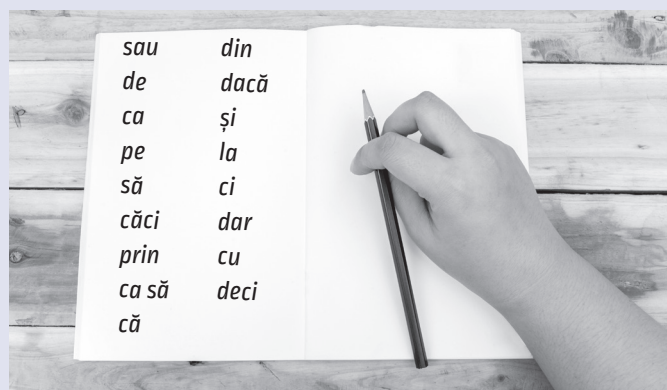 sau
de
ca
pe
să
căci
prin
ca să
că
din
dacă
și
la
ci
dar
cu
deci